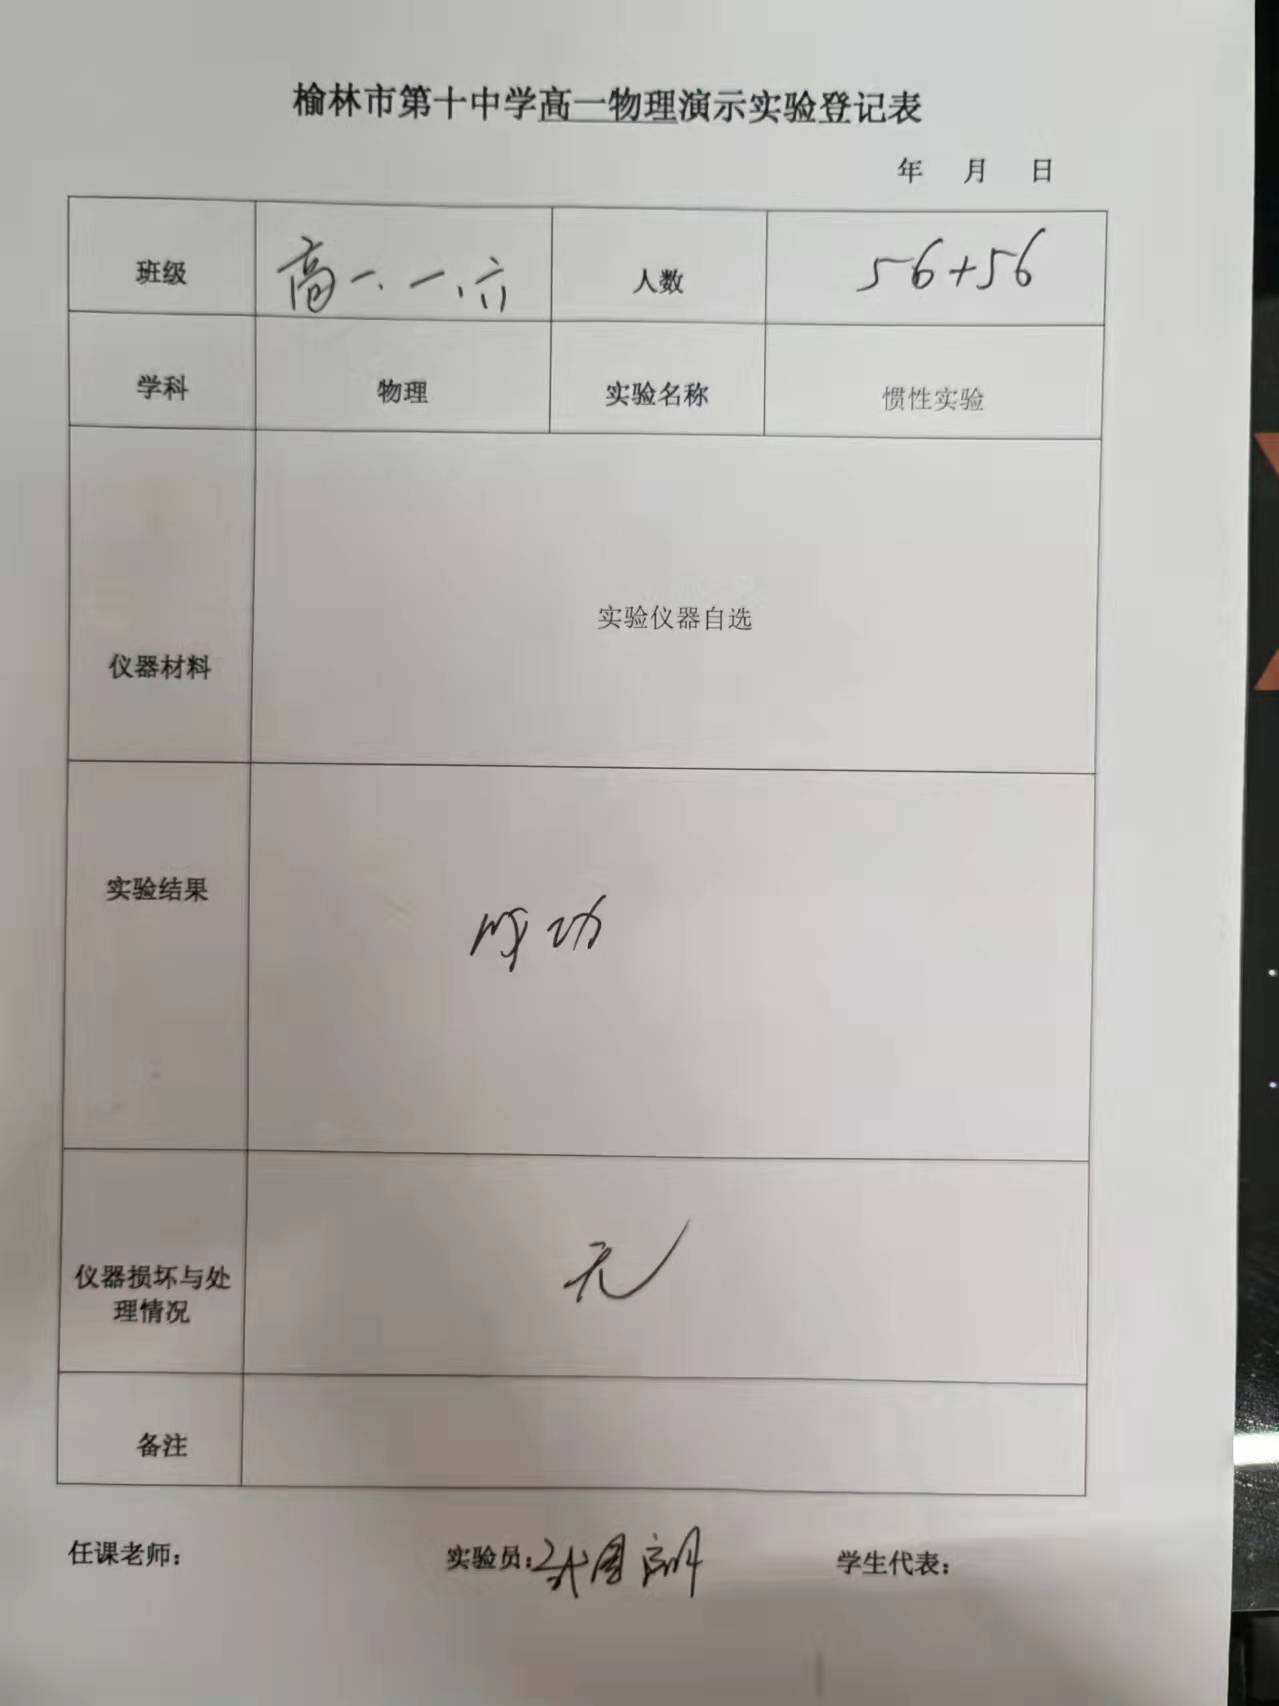 榆林市第十中学高一物理演示实验登记表
年 月 日
班级 高一、一、六 人数 56+56
学科 物理 实验名称 惯性实验
仪器材料 实验仪器自选
实验结果 成功
仪器损坏与处
理情况 无
备注
任课老师： 实验员： 学生代表：